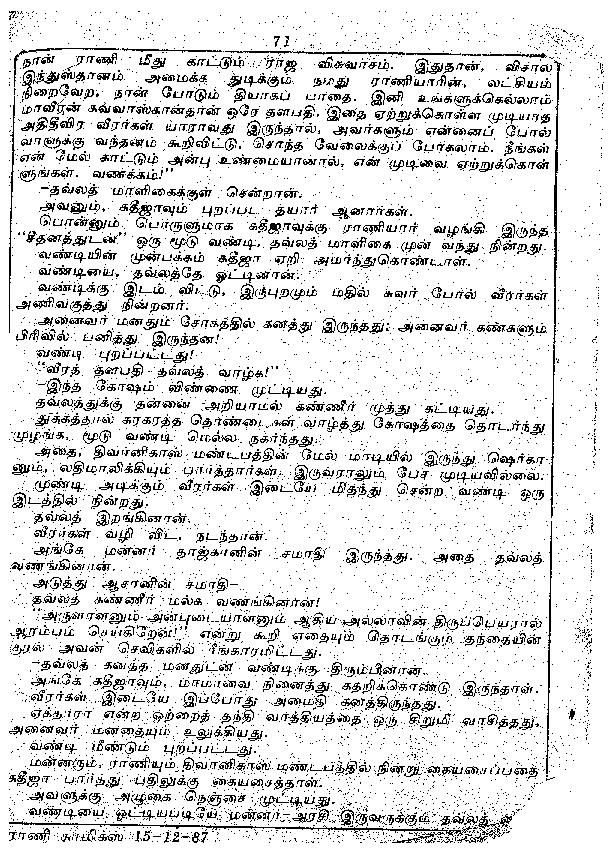 71
நான் ராணி மீது காட்டும் ராஜ விசுவாசம். இதுதான், விசால
இந்துஸ்தானம் அமைக்க துடிக்கும் நமது ராணியாரின், லட்சியம்
நிறைவேற, நான் போடும் தியாகப் பாதை. இனி உங்களுக்கெல்லாம்
மாவீரன் கவ்வாஸ்கான்தான் ஒரே தளபதி. இதை ஏற்றுக்கொள்ள முடியாத
அதிதீவிர வீரர்கள் யாராவது இருந்தால், அவர்களும் என்னைப் போல்
வாளுக்கு வந்தனம் கூறிவிட்டு, சொந்த வேலைக்குப் போகலாம். நீங்கள்
என் மேல் காட்டும் அன்பு உண்மையானால், என் முடிவை ஏற்றுக்கொள்
ளுங்கள். வணக்கம்!"
—தவ்லத் மாளிகைக்குள் சென்றான்.
அவனும், கதீஜாவும் புறப்பட தயார் ஆனார்கள்.
பொன்னும் பொருளுமாக கதீஜாவுக்கு ராணியார் வழங்கி இருந்த
"சீதனத்துடன்" ஒரு மூடு வண்டி, தவ்லத் மாளிகை முன் வந்து நின்றது.
வண்டியின் முன்பக்கம் கதீஜா ஏறி அமர்ந்துகொண்டாள்.
வண்டியை, தவ்லத்தே ஓட்டினான்.
வண்டிக்கு இடம் விட்டு, இருபுறமும் மதில் சுவர் போல் வீரர்கள்
அணிவகுத்து நின்றனர்.
அனைவர் மனதும் சோகத்தில் கனத்து இருந்தது; அனைவர் கண்களும்
பிரிவில் பனித்து இருந்தன!
வண்டி புறப்பட்டது!
"வீரத் தளபதி தவ்லத் வாழ்க!"
—இந்த கோஷம் விண்ணை முட்டியது.
தவ்லத்துக்கு தன்னை அறியாமல் கண்ணீர் முத்து கட்டியது.
துக்கத்தால் கரகரத்த தொண்டைகள் வாழ்த்து கோஷத்தை தொடர்ந்து
முழங்க, மூடு வண்டி மெல்ல நகர்ந்தது.
அதை, திவானிகாஸ் மண்டபத்தின் மேல் மாடியில் இருந்து ஷெர்கா
னும், லதிமாலிக்கியும் பார்த்தார்கள். இருவராலும் பேச முடியவில்லை.
முண்டி அடிக்கும் வீரர்கள் இடையே மிதந்து சென்ற வண்டி ஒரு
இடத்தில் நின்றது.
தவ்லத் இறங்கினான்.
வீரர்கள் வழி விட, நடந்தான்.
அங்கே மன்னர் தாஜ்கானின் சமாதி இருந்தது. அதை தவ்லத்
வணங்கினான்.
அடுத்து ஆசானின் சமாதி—
தவ்லத் கண்ணீர் மல்க வணங்கினான்!
"அருளாளனும் அன்புடையாளனும் ஆகிய அல்லாவின் திருப்பெயரால்
ஆரம்பம் செய்கிறேன்!" என்று கூறி எதையும் தொடங்கும் தந்தையின்
குரல் அவன் செவிகளில் ரீங்காரமிட்டது.
—தவ்லத் கனத்த மனதுடன் வண்டிக்கு திரும்பினான்.
அங்கே கதீஜாவும், மாமாவை நினைத்து கதறிக்கொண்டு இருந்தாள்.
வீரர்கள் இடையே இப்போது அமைதி கனத்திருந்தது.
ஏக்தாரா என்ற ஒற்றைத் தந்தி வாத்தியத்தை ஒரு சிறுமி வாசித்தது,
அனைவர் மனதையும் உலுக்கியது.
வண்டி மீண்டும் புறப்பட்டது.
மன்னரும், ராணியும் திவானிகாஸ் மண்டபத்தில் நின்று கையசைப்பதை
கதீஜா பார்த்து பதிலுக்கு கையசைத்தாள்.
அவளுக்கு அழுகை நெஞ்சை முட்டியது.
வண்டியை ஓட்டியபடியே மன்னர்-அரசி இருவருக்கும் தவ்லத்
ராணி காமிக்ஸ் 15-12-87